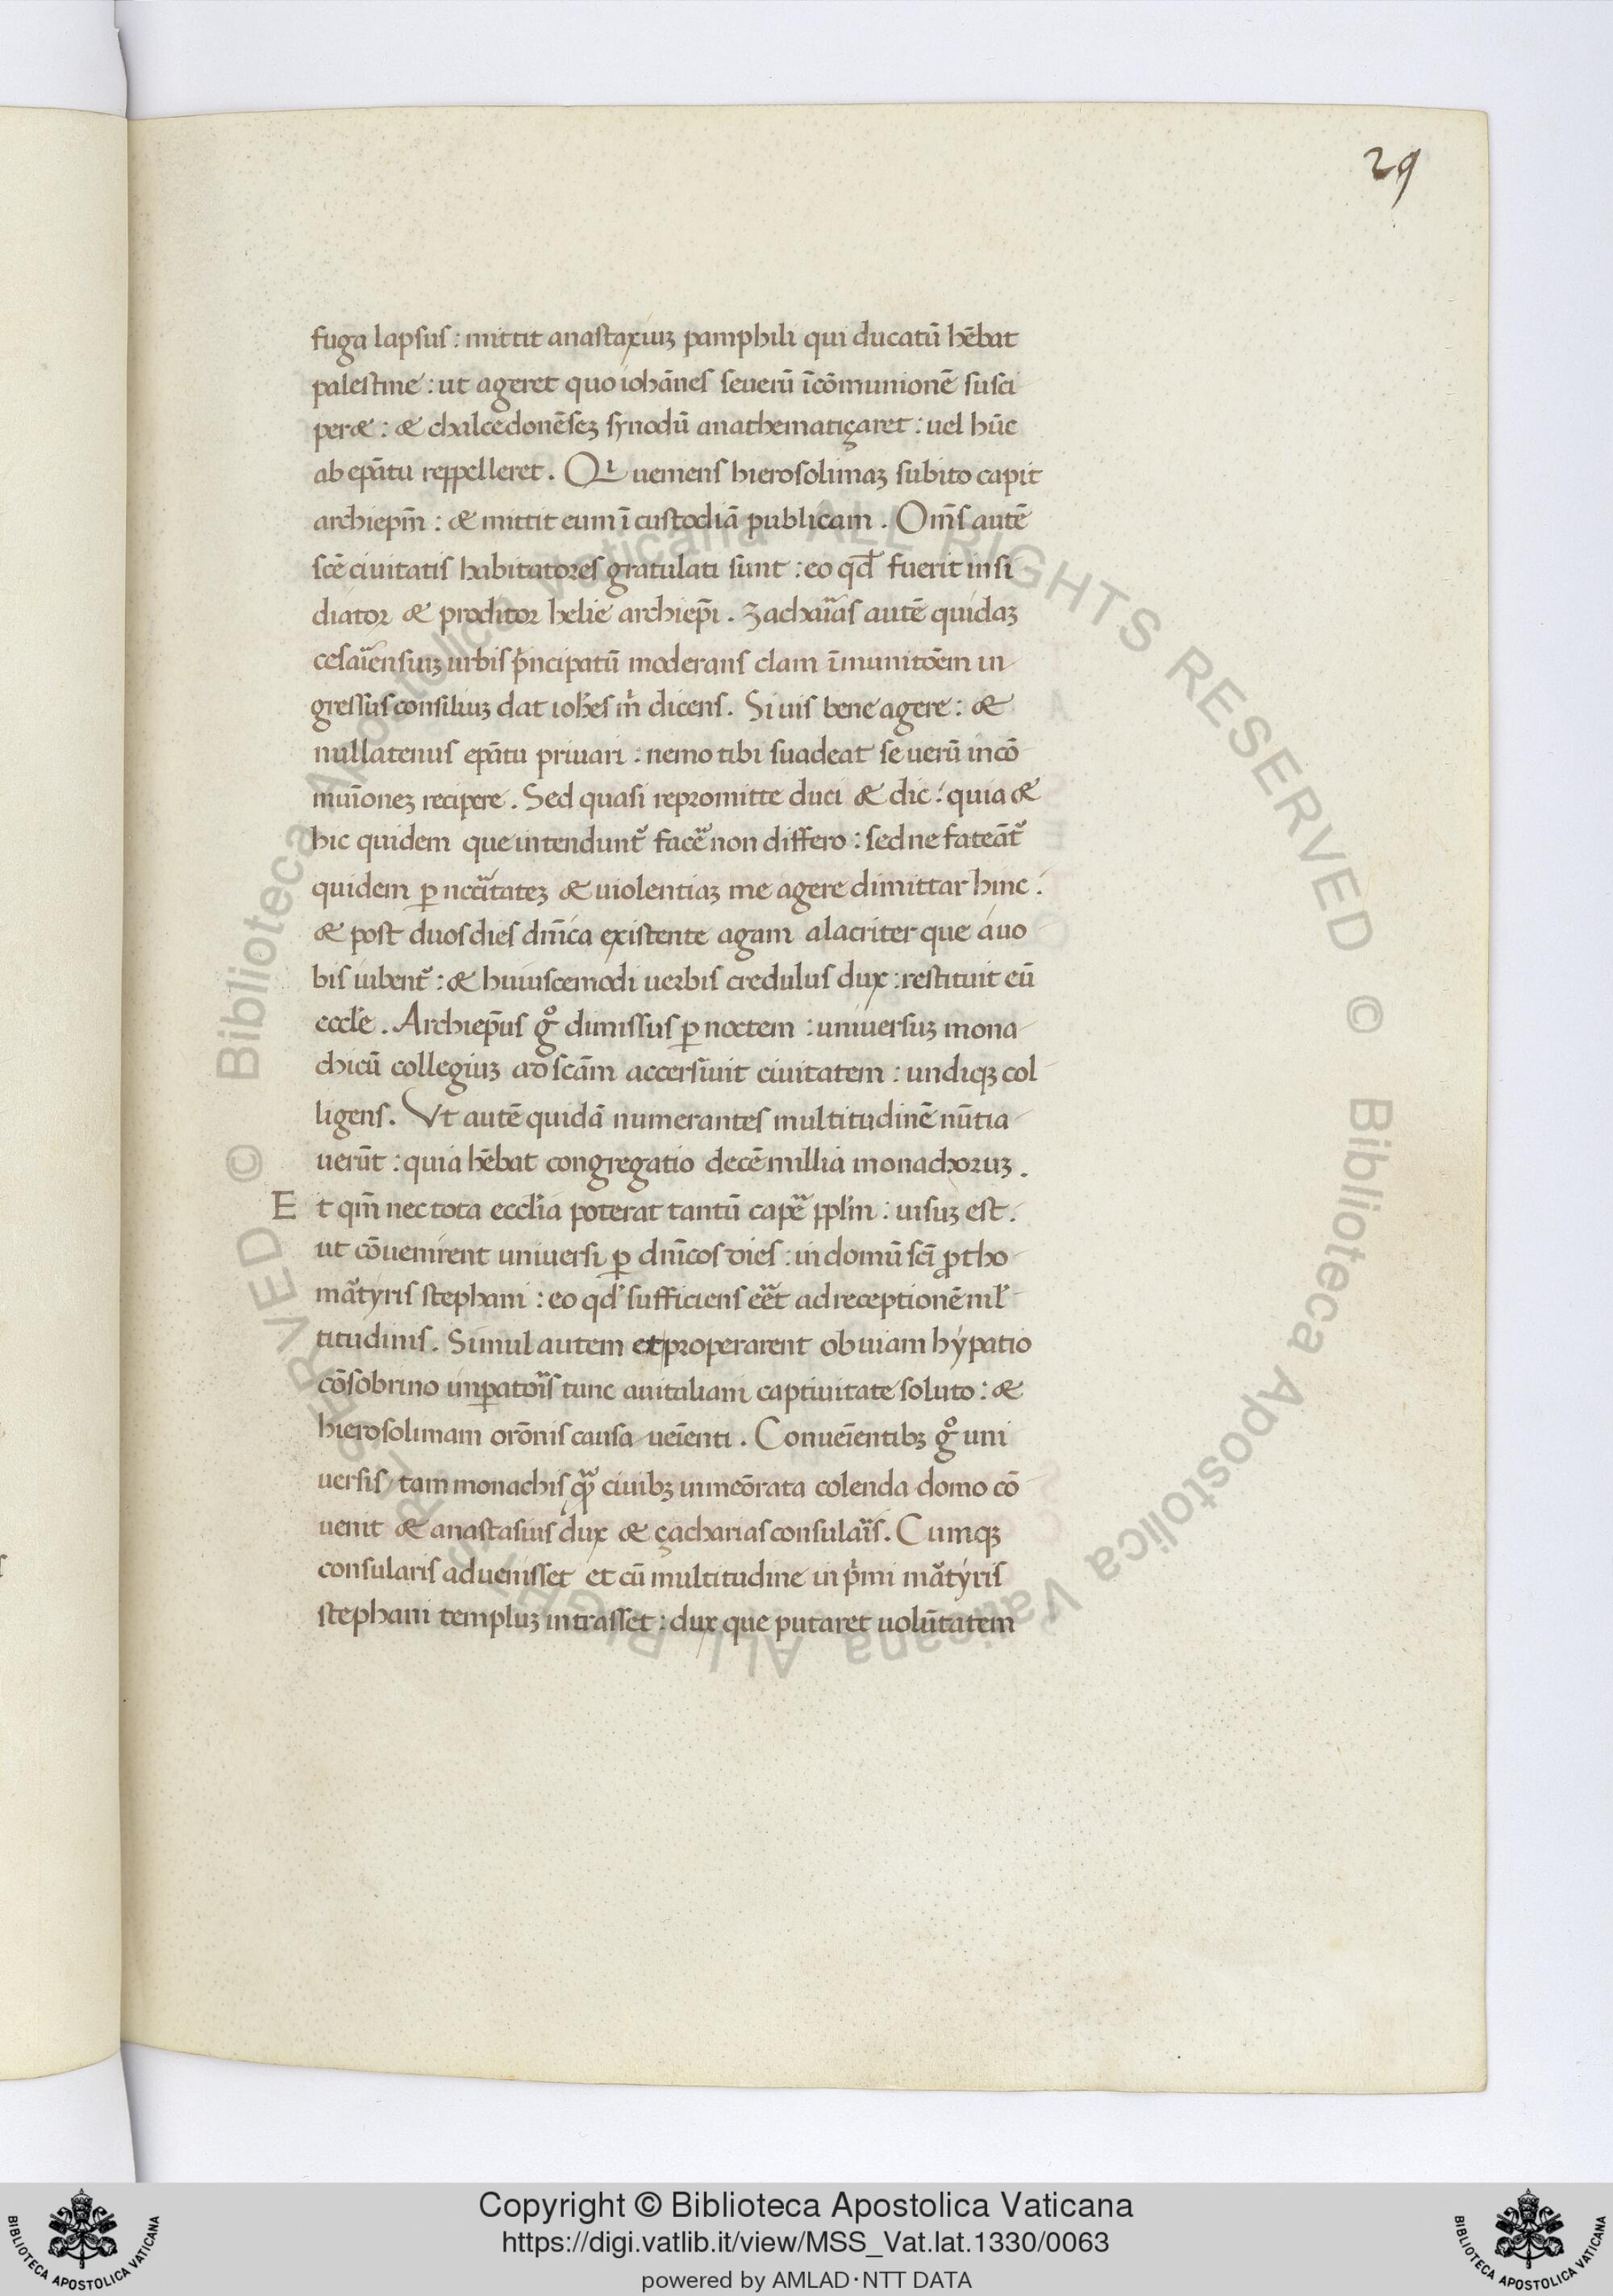 29
fuga lapsus : mittit anastaxiuʒ pamphili qui ducatū hēbat
palestine : ut ageret quo iohānes seuerū ī cōmunionē susci
peræ : & chalcedonēseʒ synodū anathematiçaret : uel hūc
ab epātu reppelleret . Qui ueniens hierosolimaʒ subito capit
archiepm̄ : & mittit eum ī custodiā publicam . Om̄s autē
scē ciuitatis habitatores gratulati sunt : eo qđ fuerit insi
diator & proditor helie archiep̄i . Zachaias autē quidaʒ
cesaiensiuʒ urbis pncipatū moderans clam ī munitōem in
gressus consiliuʒ dat iohes m̄ dicens . Si uis bene agere : &
nullatenus epātu priuari : nemo tibi suadeat seuerū in cō
muīoneʒ recipere . Sed quasi repromitte duci & dic : quia &
hic quidem que intendunt᷑ facē non differo : sed ne fateāt᷑
quidem ꝑ nccitateʒ & uiolentiaʒ me agere dimittar hinc :
& post duos dies dn̄ica existente agam alacriter que a uo
bis iubent᷑ : & huiuscemodi uerbis credulus dux : restituit eū
eccl'e . Archiep̄us gͦ dimissus ꝑ noctem : uniuersuʒ mona
chicū collegiuʒ ad scām accersiuit ciuitatem : undiqʒ col
ligens . Vt autē quidā numerantes multitudinē nūtia
uerūt : quia hēbat congregatio decē millia monachoruʒ .
Et qm̄ nec tota eccl'ia poterat tantū capē ppl'm : uisuʒ est .
ut cōuenirent uniuersi ꝑ dn̄icos dies : in domū scī ꝓtho
mātyris stephani : eo qđ sufficiens eēt ad receptionē ml'
titudinis . Simul autem et properarent obuiam hypatio
cōsobrino imꝑatois tunc a uitaliani captiuitate soluto : &
hierosolimam orōnis causa ueīenti . Conueīentibʒ gͦ uni
uersis / tam monachis qᷓ ciuibʒ in meōrata colenda domo cō
uenit & anastasius dux & çacharias consulais . Cumqʒ
consularis aduenisset et cū multitudine in pͥmi mātyris
stephani templuʒ intrasset : dux que putaret uolūtatem
Copyright © Biblioteca Apostolica Vaticana
https://digi.vatlib.it/view/MSS_Vat.lat.1330/0063
powered by AMLAD·NTT DATA